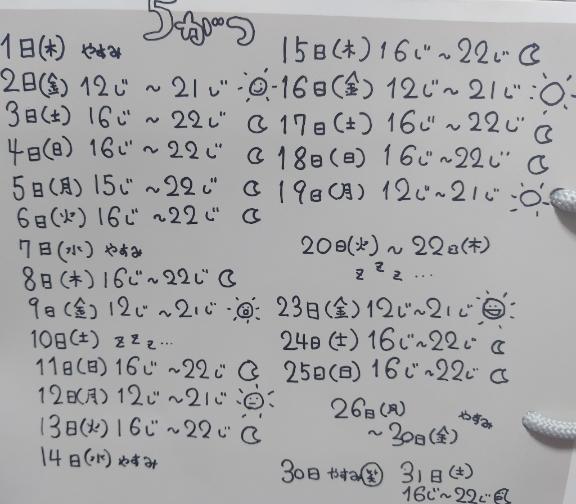 5がつ
1日(木) やすみ
2日(金) 12じ～21じ
3日(土) 16じ～22じ
4日(日) 16じ～22じ
5日(月) 15じ～22じ
6日(火) 16じ～22じ
7日(水) やすみ
8日(木) 16じ～22じ
9日(金) 12じ～21じ
10日(土) zzz…
11日(日) 16じ～22じ
12日(月) 12じ～21じ
13日(火) 16じ～22じ
14日(水) やすみ
15日(木) 16じ～22じ
16日(金) 12じ～21じ
17日(土) 16じ～22じ
18日(日) 16じ～22じ
19日(月) 12じ～21じ
20日(火)～22日(木)
zzz…
23日(金) 12じ～21じ
24日(土) 16じ～22じ
25日(日) 16じ～22じ
26日(月) やすみ
～30日(金)
30日 やすみ(笑)
31日(土)
16じ～22じ